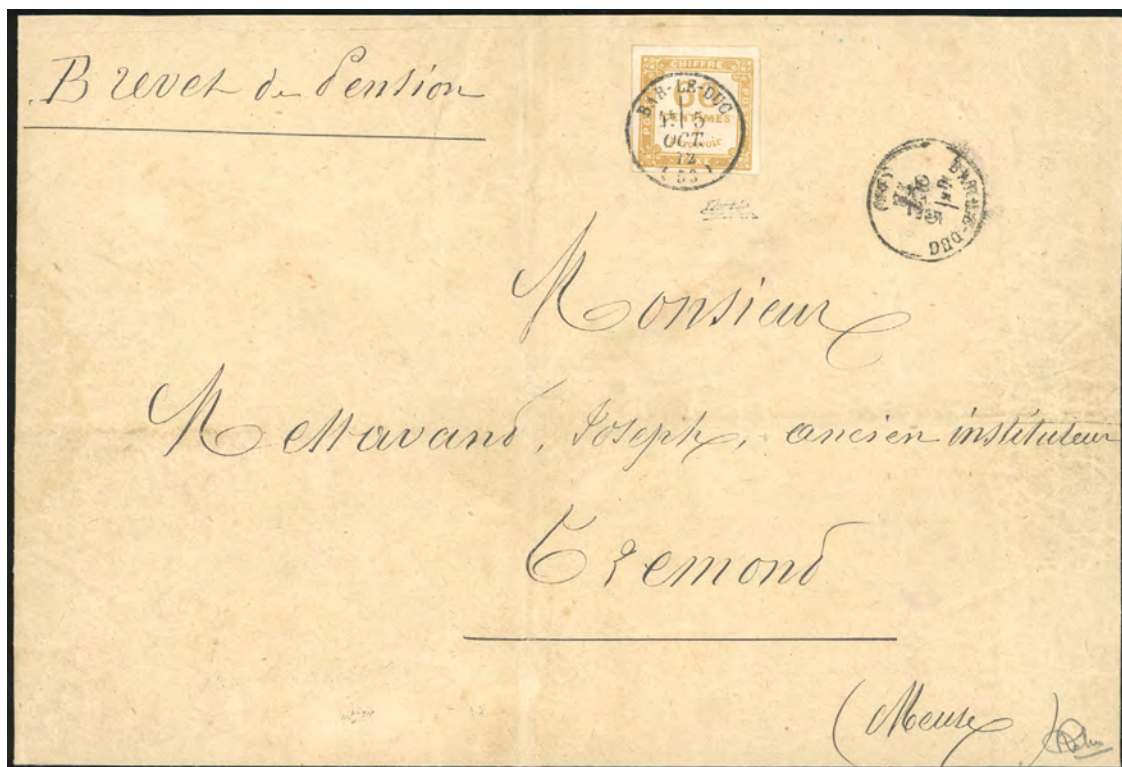 Brevet de Pension
CHIFFRE
60
CENTIMES
TAXE
BAR-LE-DUC
5
OCT.
72
BAR-LE-DUC
Monsieur
Mettavand, Joseph, ancien instituteur
Tremond
(Meuse)